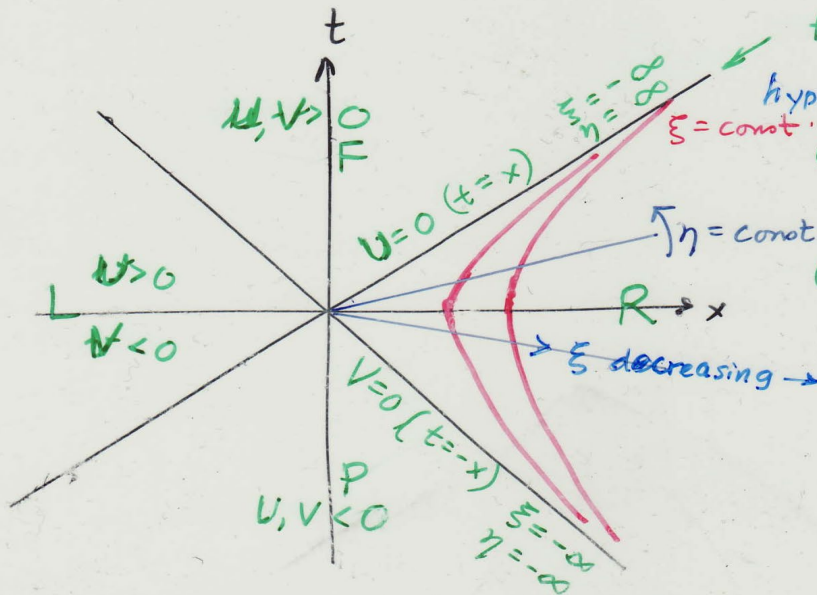 t
U, V > 0
F
ξ = -∞
η = ∞
hyp
ξ = const.
U = 0 (t = x)
η = const
U > 0
L
V < 0
R
x
ξ decreasing →
V = 0 (t = -x)
P
U, V < 0
ξ = -∞
η = -∞